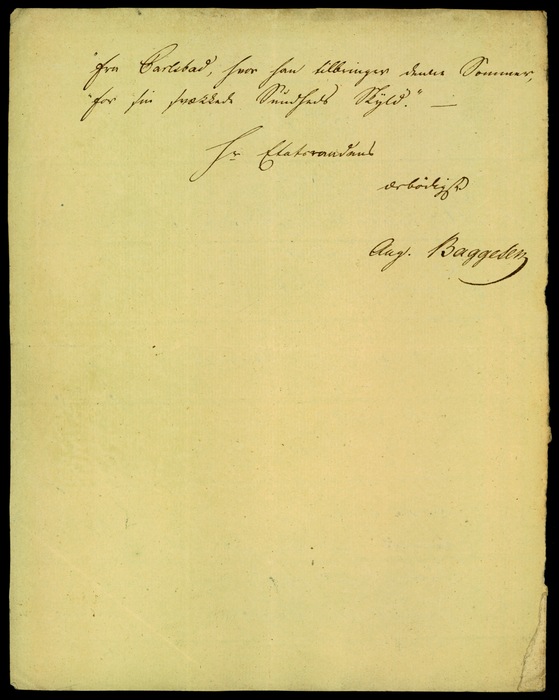 "fra Carlsbad, hvor han tilbringer denne Sommer,
"for sin svækkede Sundheds Skyld." —
Hr Etatsraadens
ærbødigst
Aug. Baggesen